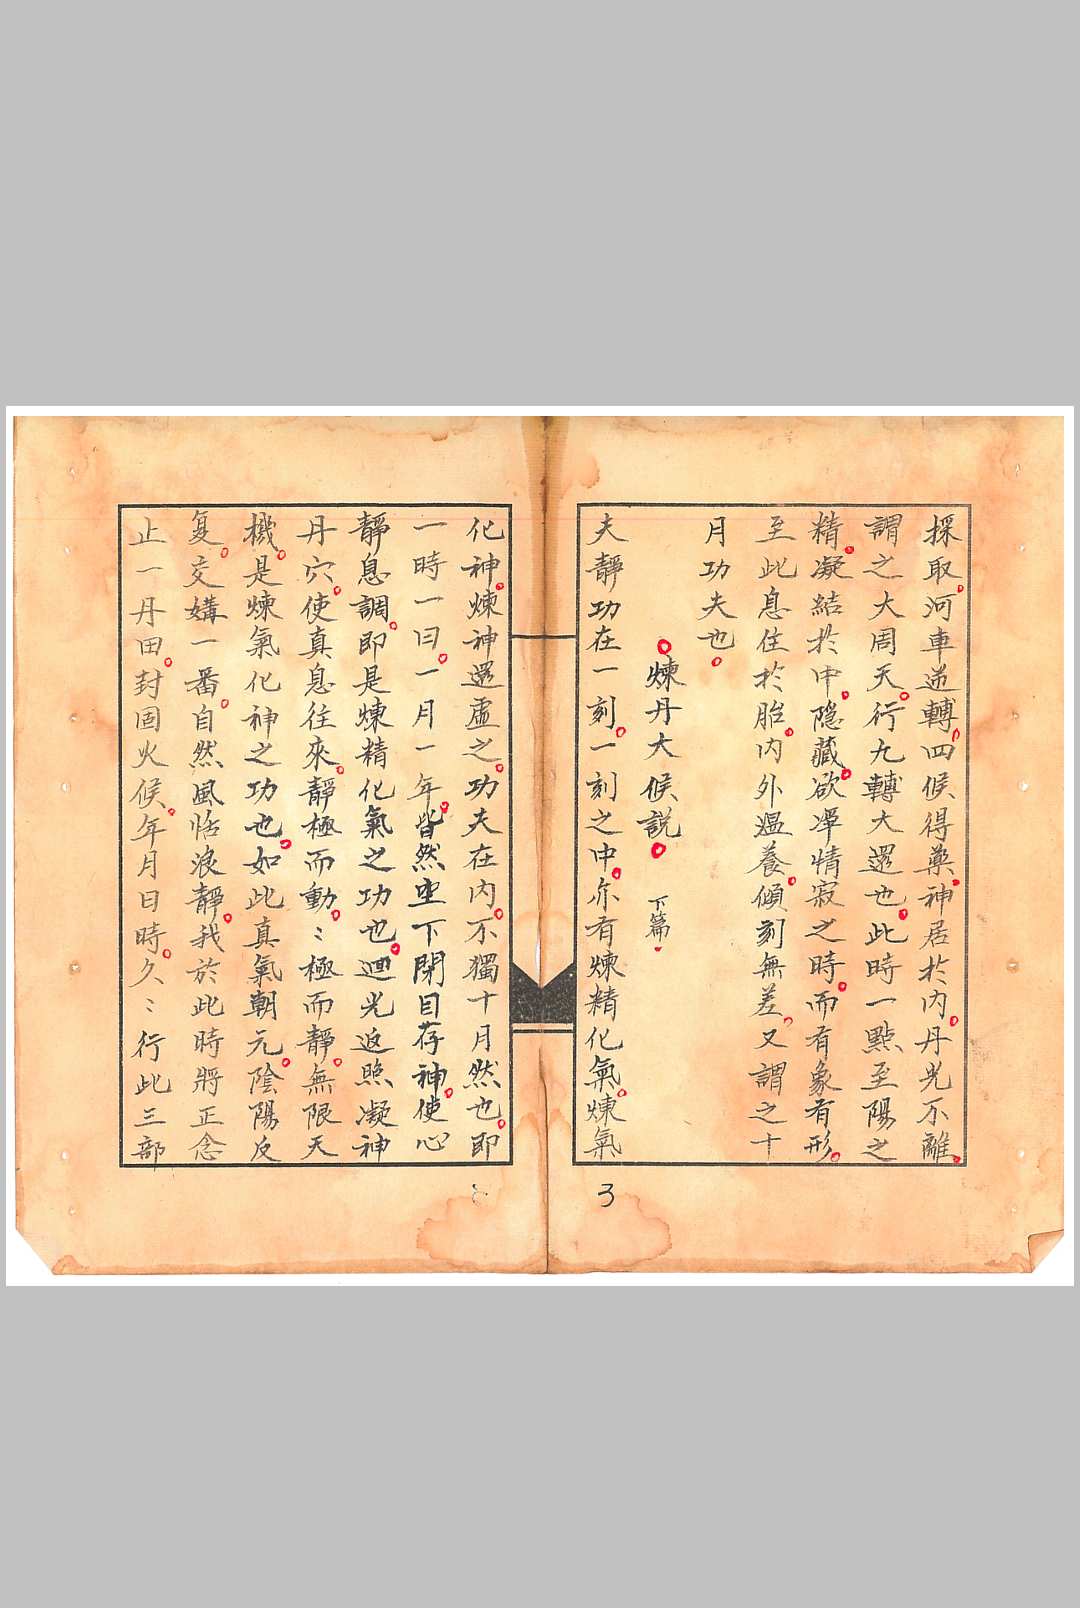 採取。河車逆轉。四候得藥。神居於內。丹光不離。
謂之大周天。行九轉大還也。此時一點至陽之
精。凝結於中。隱藏。欲凈情寂之時。而有象有形。
至此息住於胎。內外溫養。傾刻無差。又謂之十
月功夫也。
。煉丹大候說。 下篇。
夫靜功在一刻。一刻之中。亦有煉精化氣。煉氣
3
化神。煉神還虛之。功夫在內。不獨十月然也。即
一時一日。一月一年。皆然坐下閉目存神。使心
靜息調。即是煉精化氣之功也。迴光返照凝神
丹穴。使真息往來。靜極而動。：極而靜。無限天
機。是煉氣化神之功也。如此真氣朝元。陰陽反
复。交媾一番。自然風恬浪靜。我於此時將正念
止一丹田。封固火候。年月日時。久：行此三部